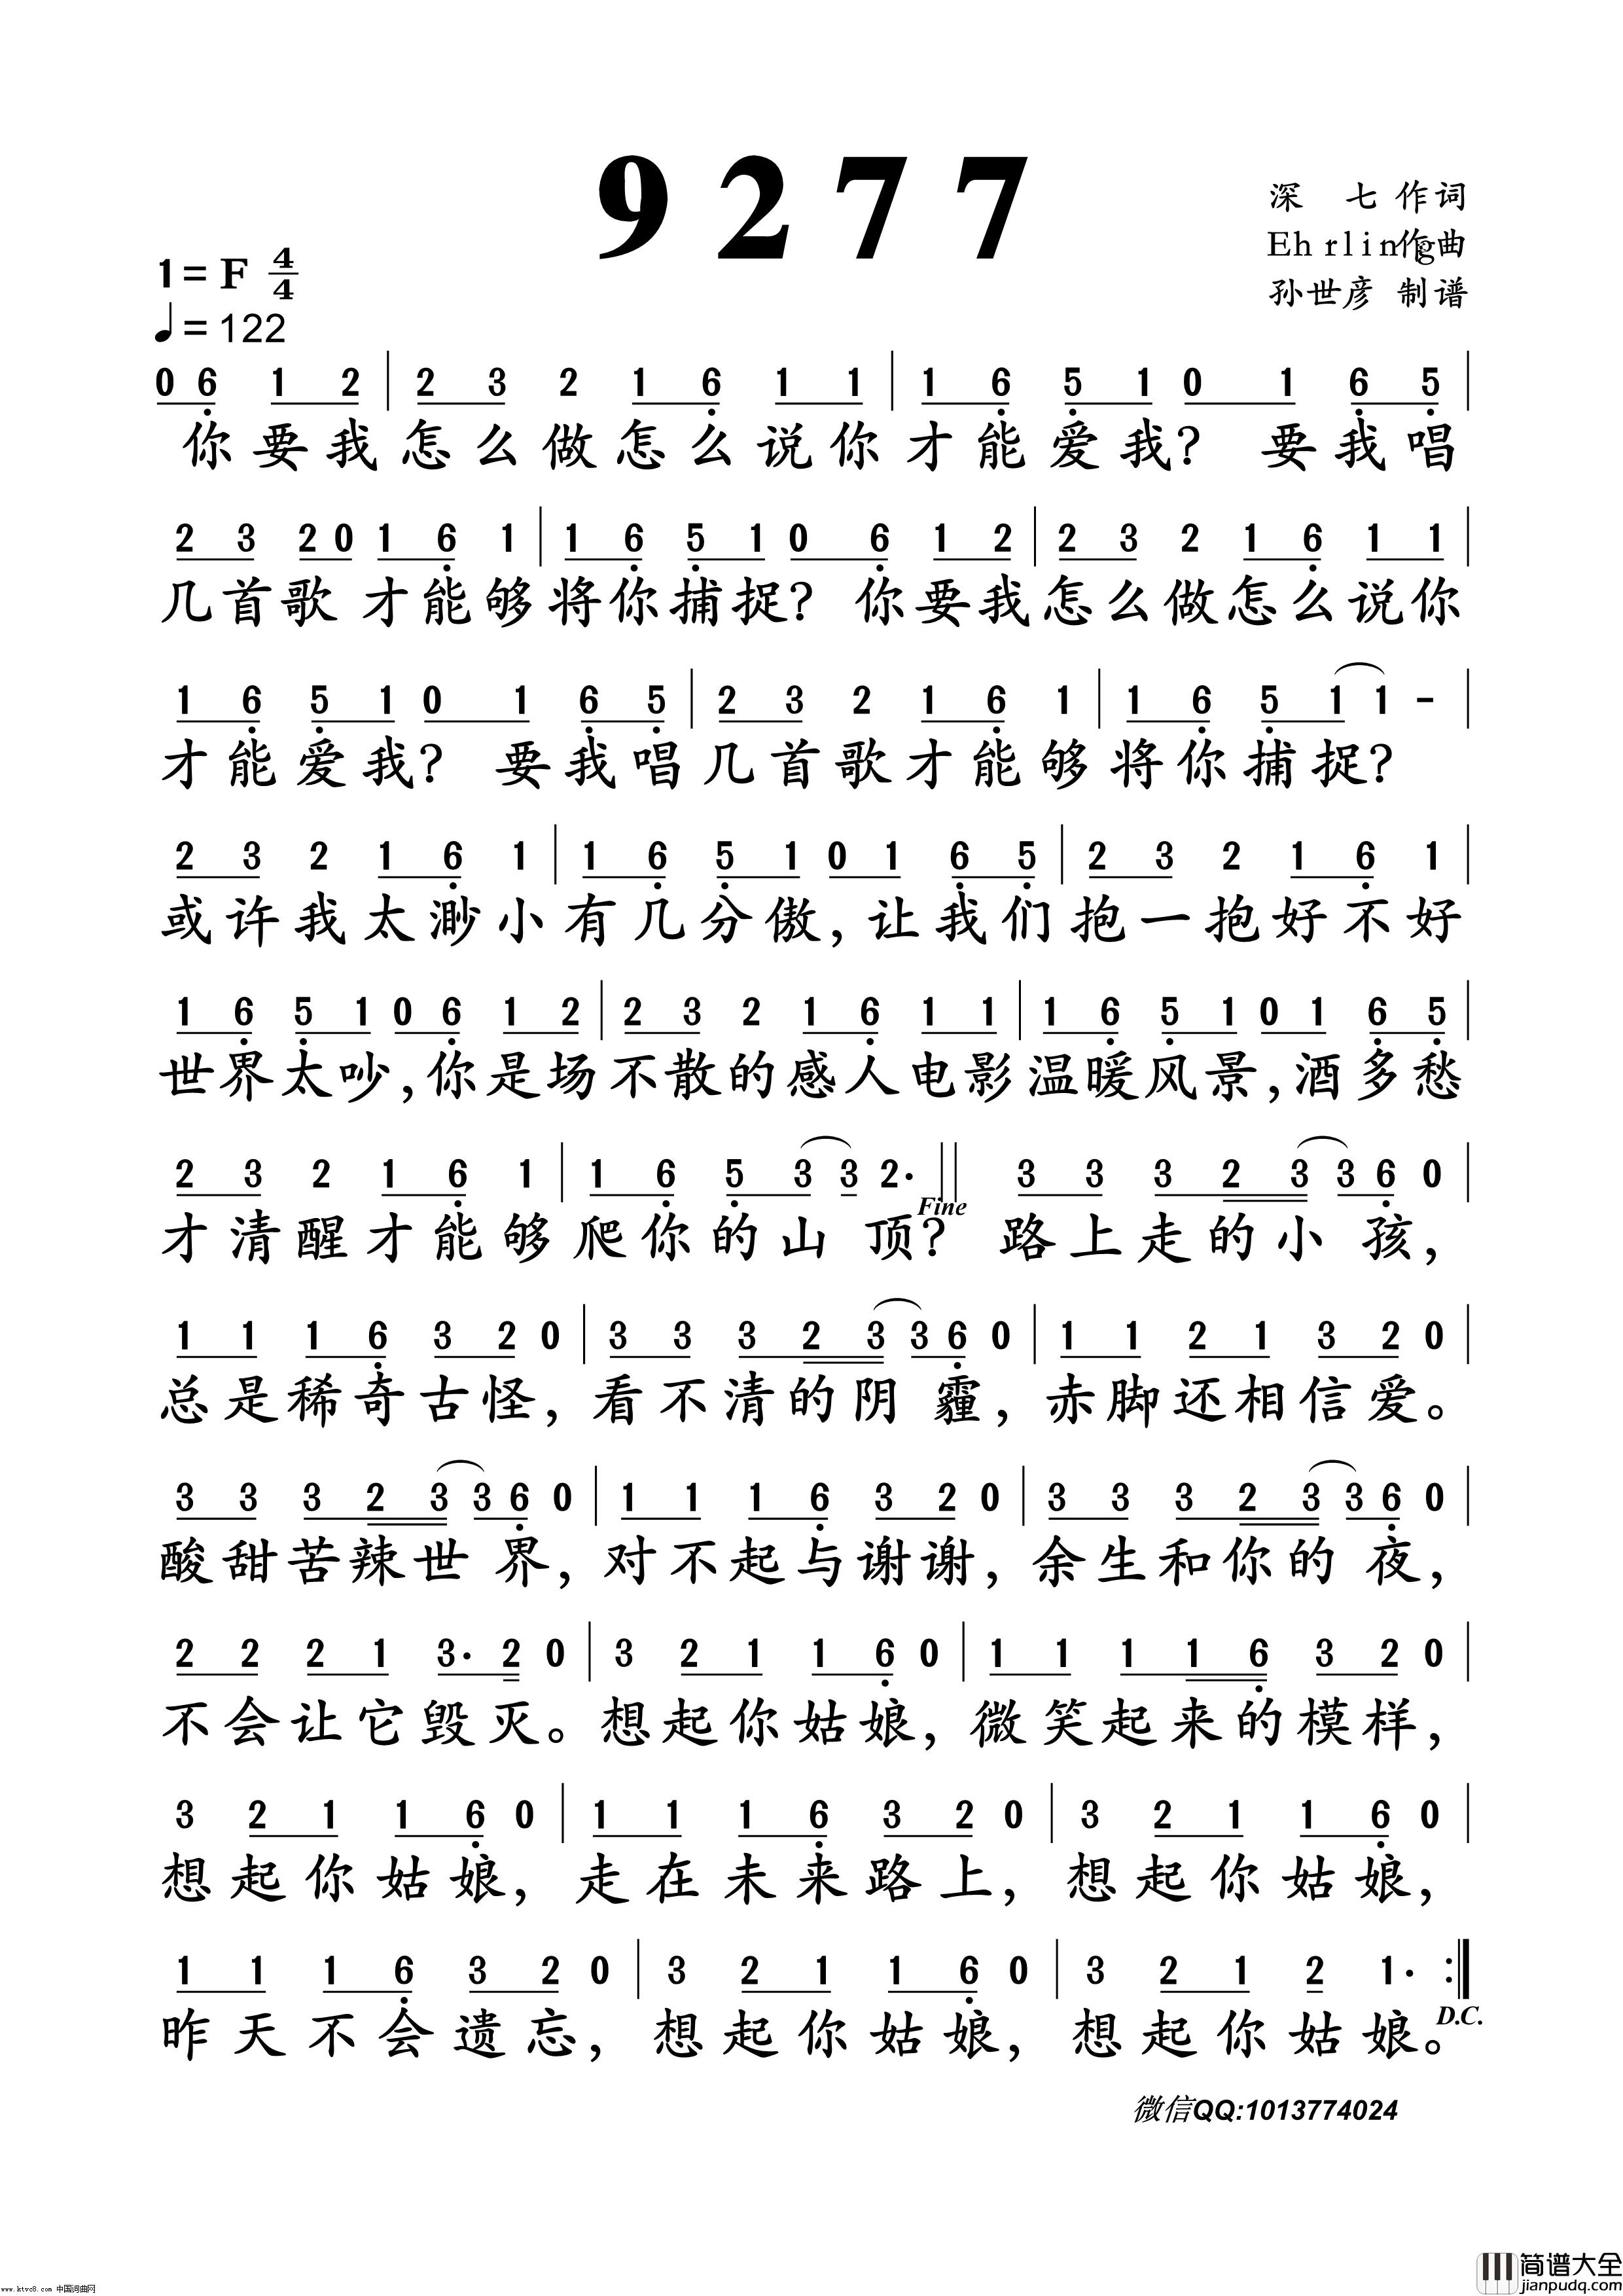 9277
深 七 作词
Ehrling作曲
孙世彦 制谱
1=F 4/4
♩=122
0 6 1 2 | 2 3 2 1 6 1 1 | 1 6 5 1 0 1 6 5 |
你要我怎么做怎么说你才能爱我? 要我唱
2 3 2 0 1 6 1 | 1 6 5 1 0 6 1 2 | 2 3 2 1 6 1 1 |
几首歌 才能够将你捕捉? 你要我怎么做怎么说你
1 6 5 1 0 1 6 5 | 2 3 2 1 6 1 | 1 6 5 1 1 - |
才能爱我? 要我唱几首歌才能够将你捕捉?
2 3 2 1 6 1 | 1 6 5 1 0 1 6 5 | 2 3 2 1 6 1 |
或许我太渺小有几分傲,让我们抱一抱好不好
1 6 5 1 0 6 1 2 | 2 3 2 1 6 1 1 | 1 6 5 1 0 1 6 5 |
世界太吵,你是场不散的感人电影温暖风景,酒多愁
2 3 2 1 6 1 | 1 6 5 3 3 2· || 3 3 3 2 3 3 6 0 |
Fine
才清醒才能够爬你的山 顶? 路上走的小 孩,
1 1 1 6 3 2 0 | 3 3 3 2 3 3 6 0 | 1 1 2 1 3 2 0 |
总是稀奇古怪,看不清的阴 霾,赤脚还相信爱。
3 3 3 2 3 3 6 0 | 1 1 1 6 3 2 0 | 3 3 3 2 3 3 6 0 |
酸甜苦辣世 界,对不起与谢谢,余生和你的 夜,
2 2 2 1 3· 2 0 | 3 2 1 1 6 0 | 1 1 1 1 6 3 2 0 |
不会让它毁灭。想起你姑娘,微笑起来的模样,
3 2 1 1 6 0 | 1 1 1 6 3 2 0 | 3 2 1 1 6 0 |
想起你姑娘,走在未来路上,想起你姑娘,
1 1 1 6 3 2 0 | 3 2 1 1 6 0 | 3 2 1 2 1· :||
D.C.
昨天不会遗忘,想起你姑娘,想起你姑娘。
微信QQ:1013774024
www.ktvc8.com 中国词曲网
简谱大全
jianpudq.com